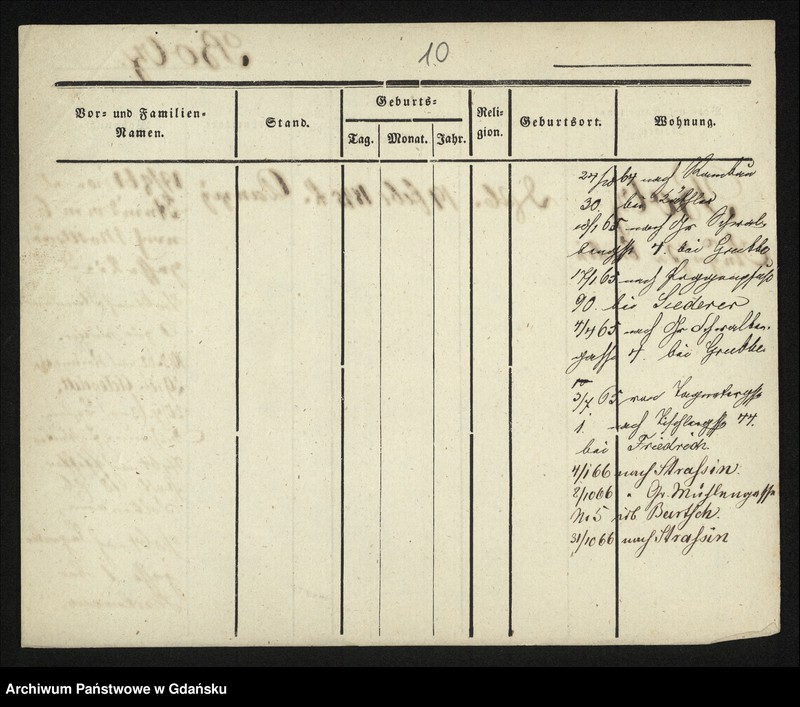 10
Vor- und Familien-
Namen.
Stand.
Geburts-
Tag.
Monat.
Jahr.
Reli-
gion.
Geburtsort.
Wohnung.
24/10 64 nach Rambau
30. bei
18/1 65 nach Gr Schwal-
bengss 4. bei Grubbe
17/1 65 nach Poggenpfuhl
90. bei Siederer
4/4 65 nach Gr Schwalben-
gasse 4. bei Grubbe
3/7 65 von
1. nach Tischlergss 44.
bei Friedrich.
4/1 66 nach Straschin.
2/10 66 " Gr. Mühlengasse
No 5 bei Bartsch.
31/10 66 nach Straschin
Archiwum Państwowe w Gdańsku